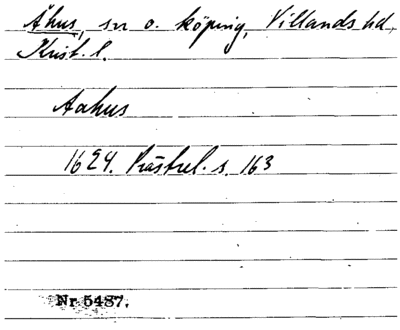 Åhus, sn o. köping, Villands hd,
Krist. l.
Aahus
1624. Prästrel. s. 163
Nr. 5487.